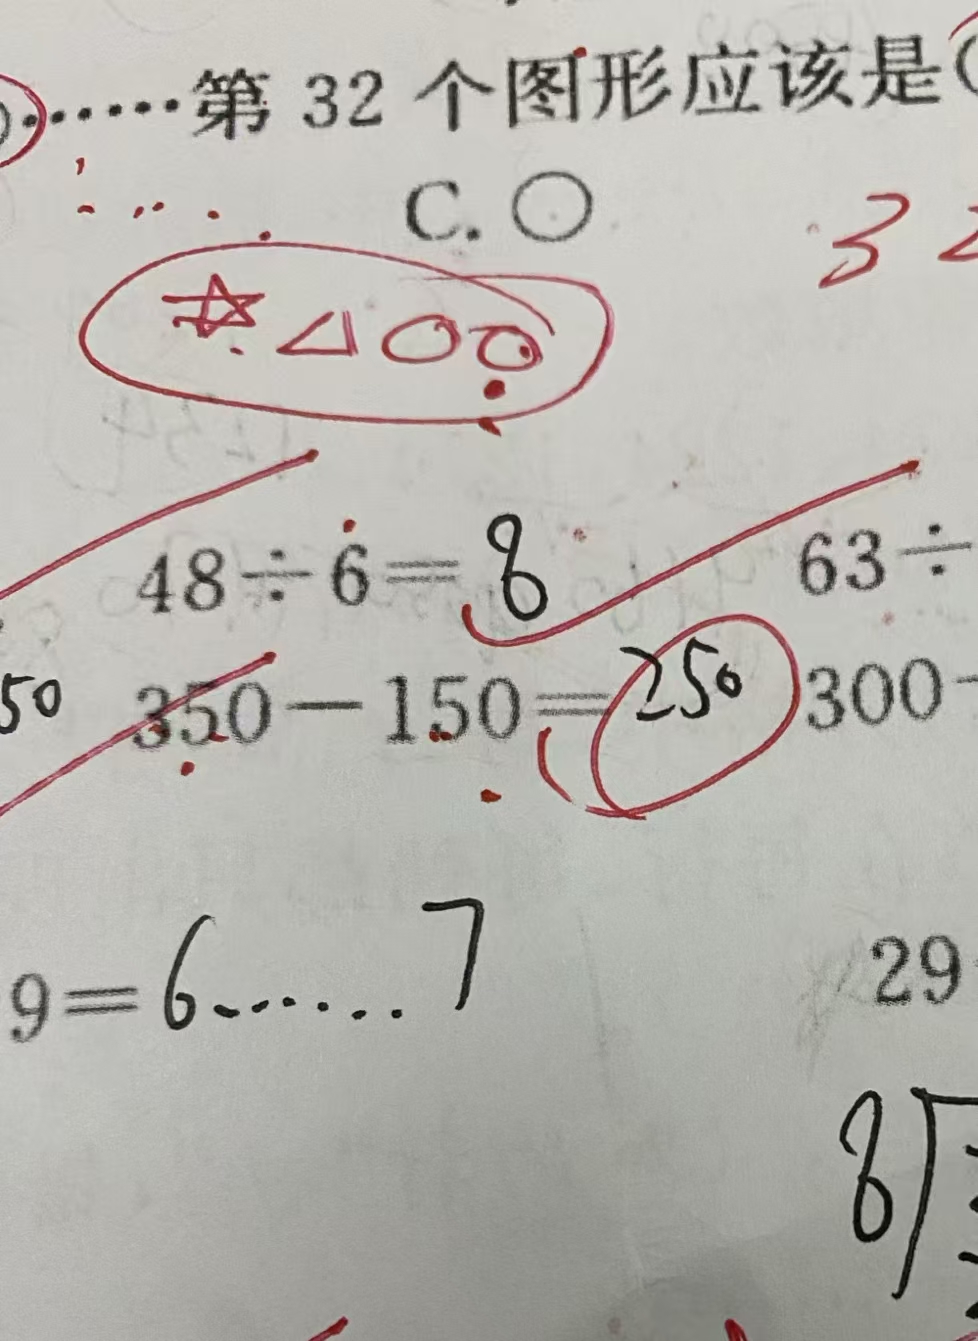 ……第 32 个图形应该是(
C. ○
3
☆△○○
48÷6=8 63÷
50 350－150=250 300－
9=6……7 29
8